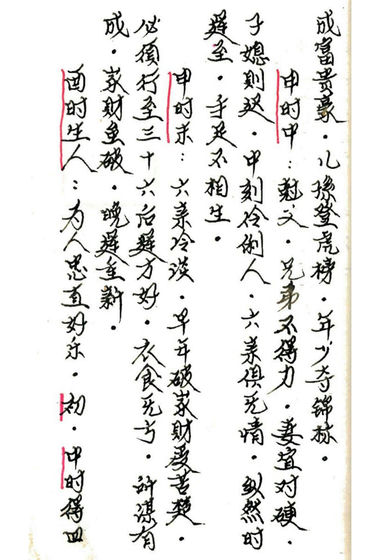 成富贵豪．儿孫登虎榜．年少夺锦标．
申时中：尅父．兄弟不得力．妻宜对硬．
子媳则迟．中刻伶俐人．六亲俱无情．纵然时
　至．手足不相生．
申时末：六亲冷淡．早年破家财受苦楚．
必须行至三十六后　方好．衣食无亏．　谋有
成．家财重破．晚　重新．
酉时生人：为人忠直好乐．初．中时得四